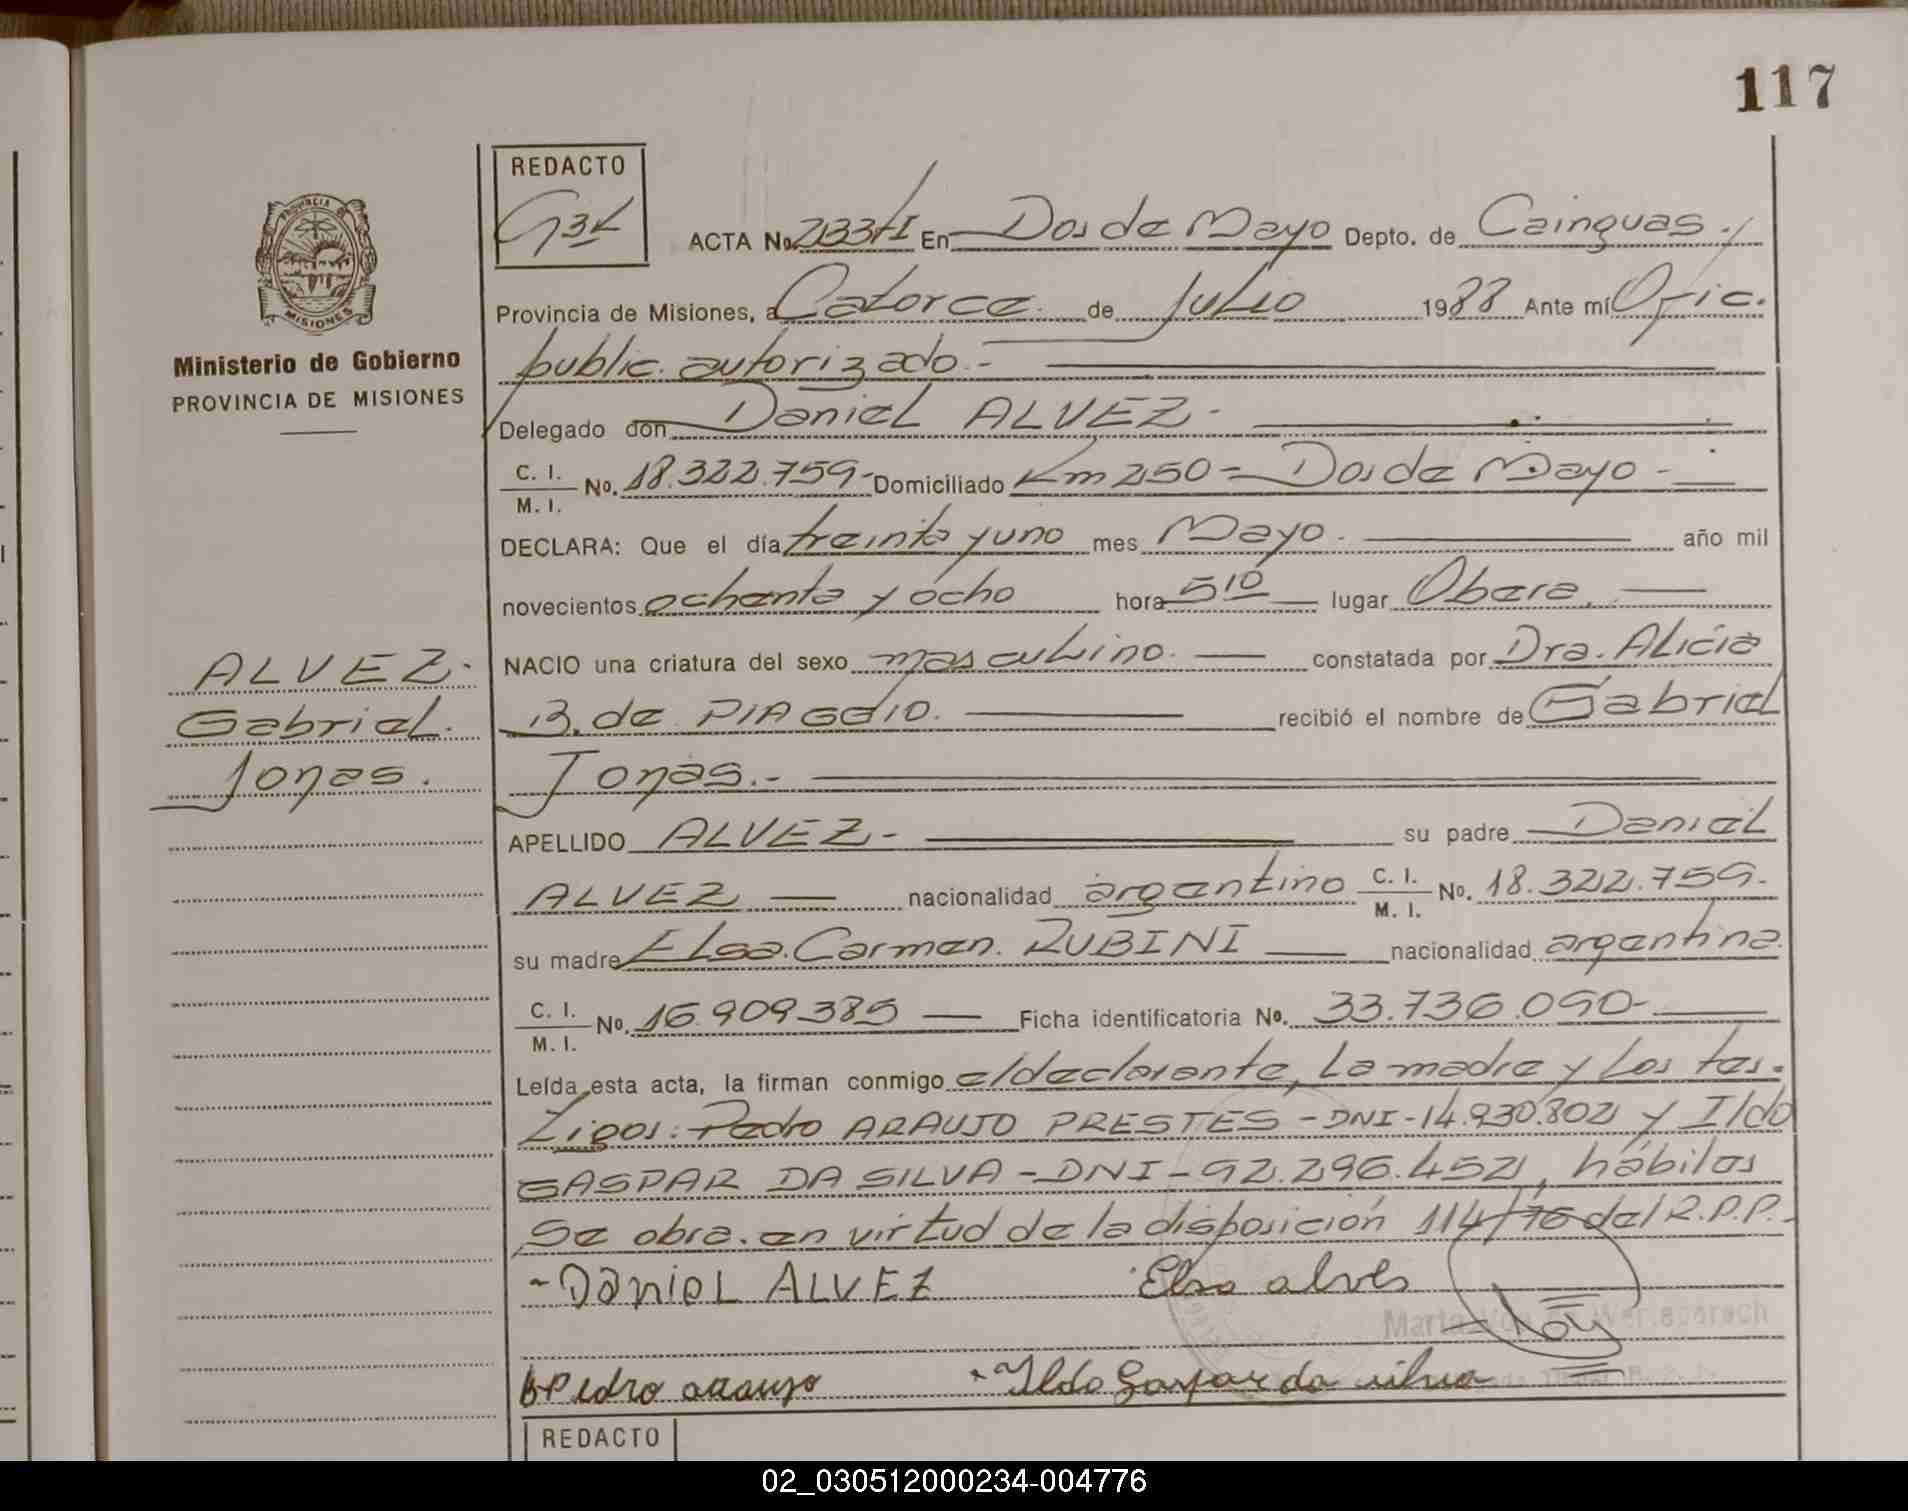 117
REDACTO
PROVINCIA DE MISIONES
Ministerio de Gobierno
PROVINCIA DE MISIONES
ACTA No. 233/I En Dos de Mayo Depto. de Cainguas.
Provincia de Misiones, a Catorce. de Julio 1988 Ante mí Ofic.
public. autorizado.-
Delegado don Daniel ALVEZ-
C. I. / M. I. No. 18.322.759- Domiciliado Km 250 = Dos de Mayo -
DECLARA: Que el día treinta y uno mes Mayo. año mil
novecientos ochenta y ocho hora 5 10 lugar Obera.
NACIO una criatura del sexo masculino. constatada por Dra. Alicia
B. de PIAGGIO. recibió el nombre de Gabriel
Jonas.-
ALVEZ.
Gabriel.
Jonas.
APELLIDO ALVEZ- su padre Daniel
ALVEZ nacionalidad argentino C. I. / M. I. No. 18.322.759-
su madre Elsa Carmen. RUBINI nacionalidad argentina.
C. I. / M. I. No. 16.909.385 Ficha identificatoria No. 33.736.090-
Leída esta acta, la firman conmigo el declarante, La madre y Los tes-
tigos: Pedro ARAUJO PRESTES - DNI - 14.930.802 y Ildo
GASPAR DA SILVA - DNI - 92.296.452, hábiles
Se obra. en virtud de la disposición 114/76 del R.P.P.-
- Daniel ALVEZ Elsa alves
Pedro araujo Ildo Gaspar da silva
REDACTO
02_030512000234-004776